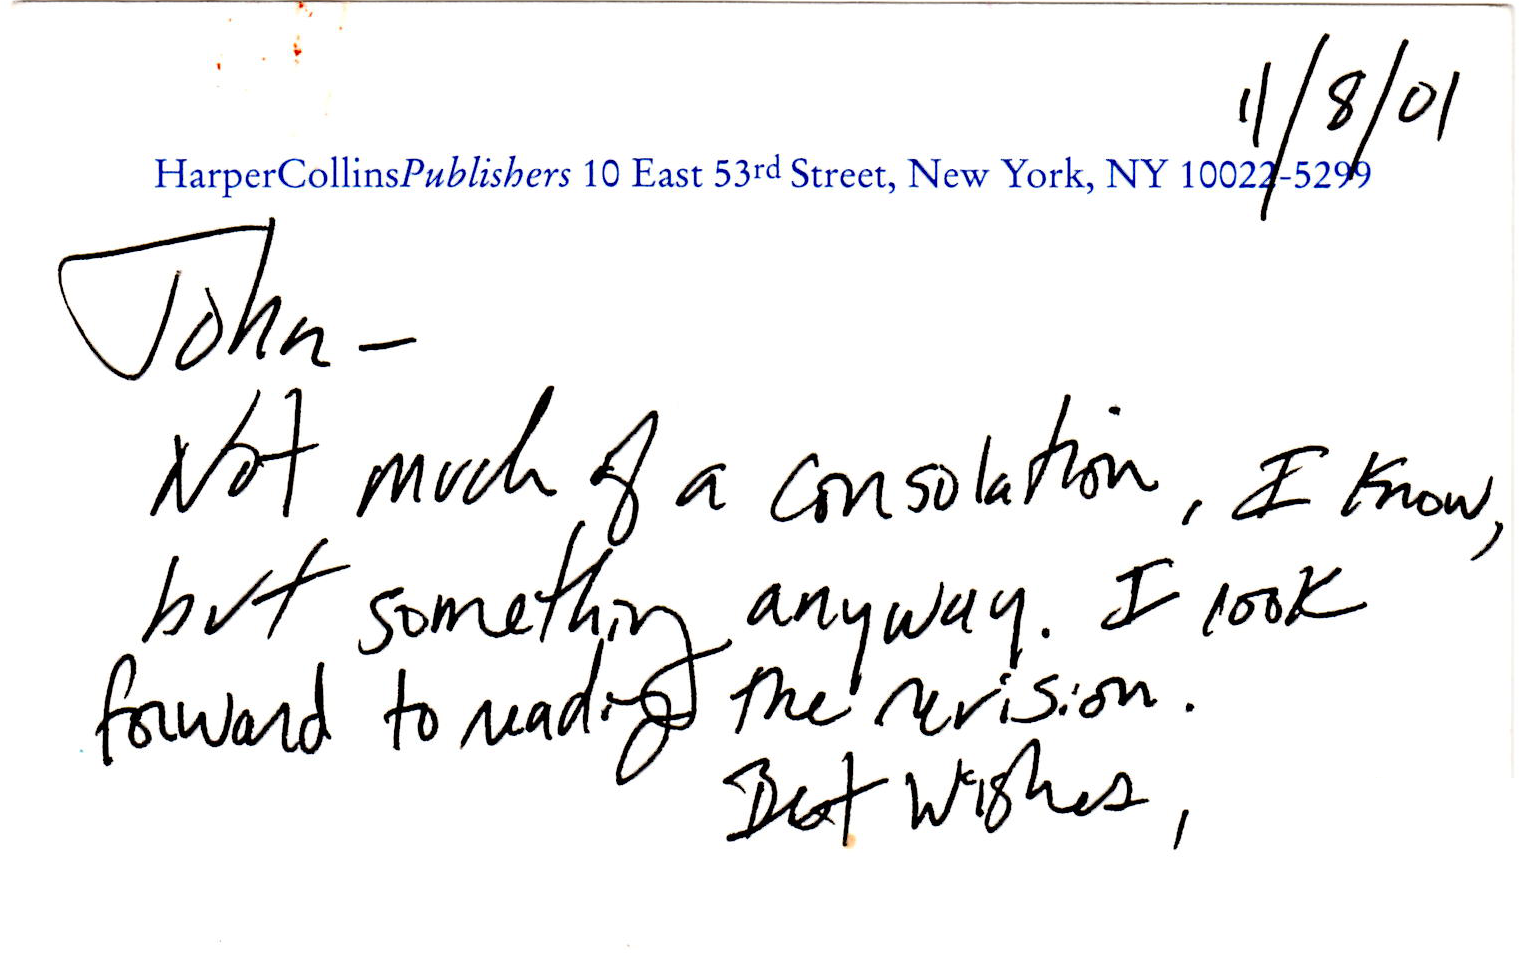 11/8/01
HarperCollinsPublishers 10 East 53rd Street, New York, NY 10022-5299
John –
Not much of a consolation, I know,
but something anyway. I look
forward to reading the revision.
Best Wishes,